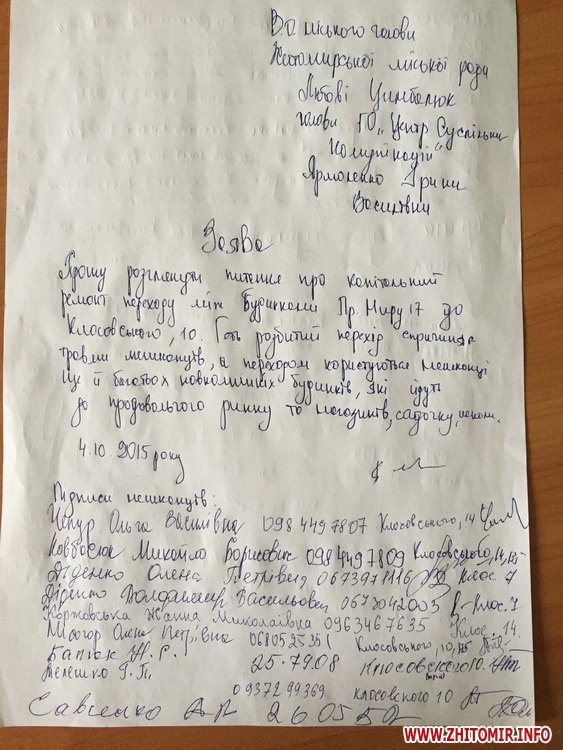 В.о міського голови
Житомирської міської ради
Любові Цимбалюк
голови ГО „Центр Суспільних
Комунікацій"
Ярмоленко Ірини
Василівни
Заява
Прошу розглянути питання про капітальний
ремонт переходу між будинками Пр. Миру 17 до
Клосовського, 10. розбитий перехід спричиняє
травми мешканців, а переходом користуються мешканці
ще й багатьох навколишніх будинків, які йдуть
до продовольчого ринку та магазинів, садочку, школи.
4.10.2015 року
Підписи мешканців:
Ольга Василівна 0984497807 Клосовського, 14
Ковбасюк Михайло Борисович 0984497809 Клосовського, 14,
Діденко Олена Петрівна 0673971116 Клос 7
Діденко Володимир Васильович 0673042003 Клос. 7
Коржовська Жанна Миколаївна 0963467635 Клос. 14.
Олена Петрівна 0680525351 Клосовського, 10,
Н.Г. 25.79.08 Клосовского 10.
Телешко Г.П.
0937299369 клосовського 10
Савченко 260550
WWW.ZHITOMIR.INFO